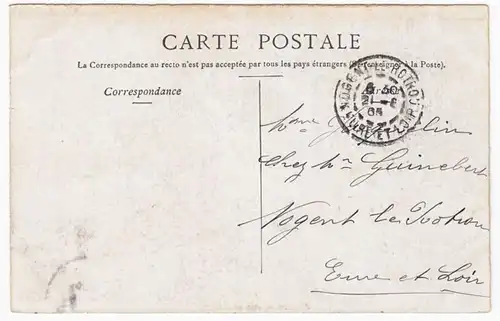 CARTE POSTALE
La Correspondance au recto n'est pas acceptée par tous les pays étrangers (Se renseigner à la Poste).
Correspondance
NOGENT-LE-ROTROU
EURE-ET-LOIR
Mme
Chez Mr Guinebert
Nogent le Rotrou
Eure et Loir